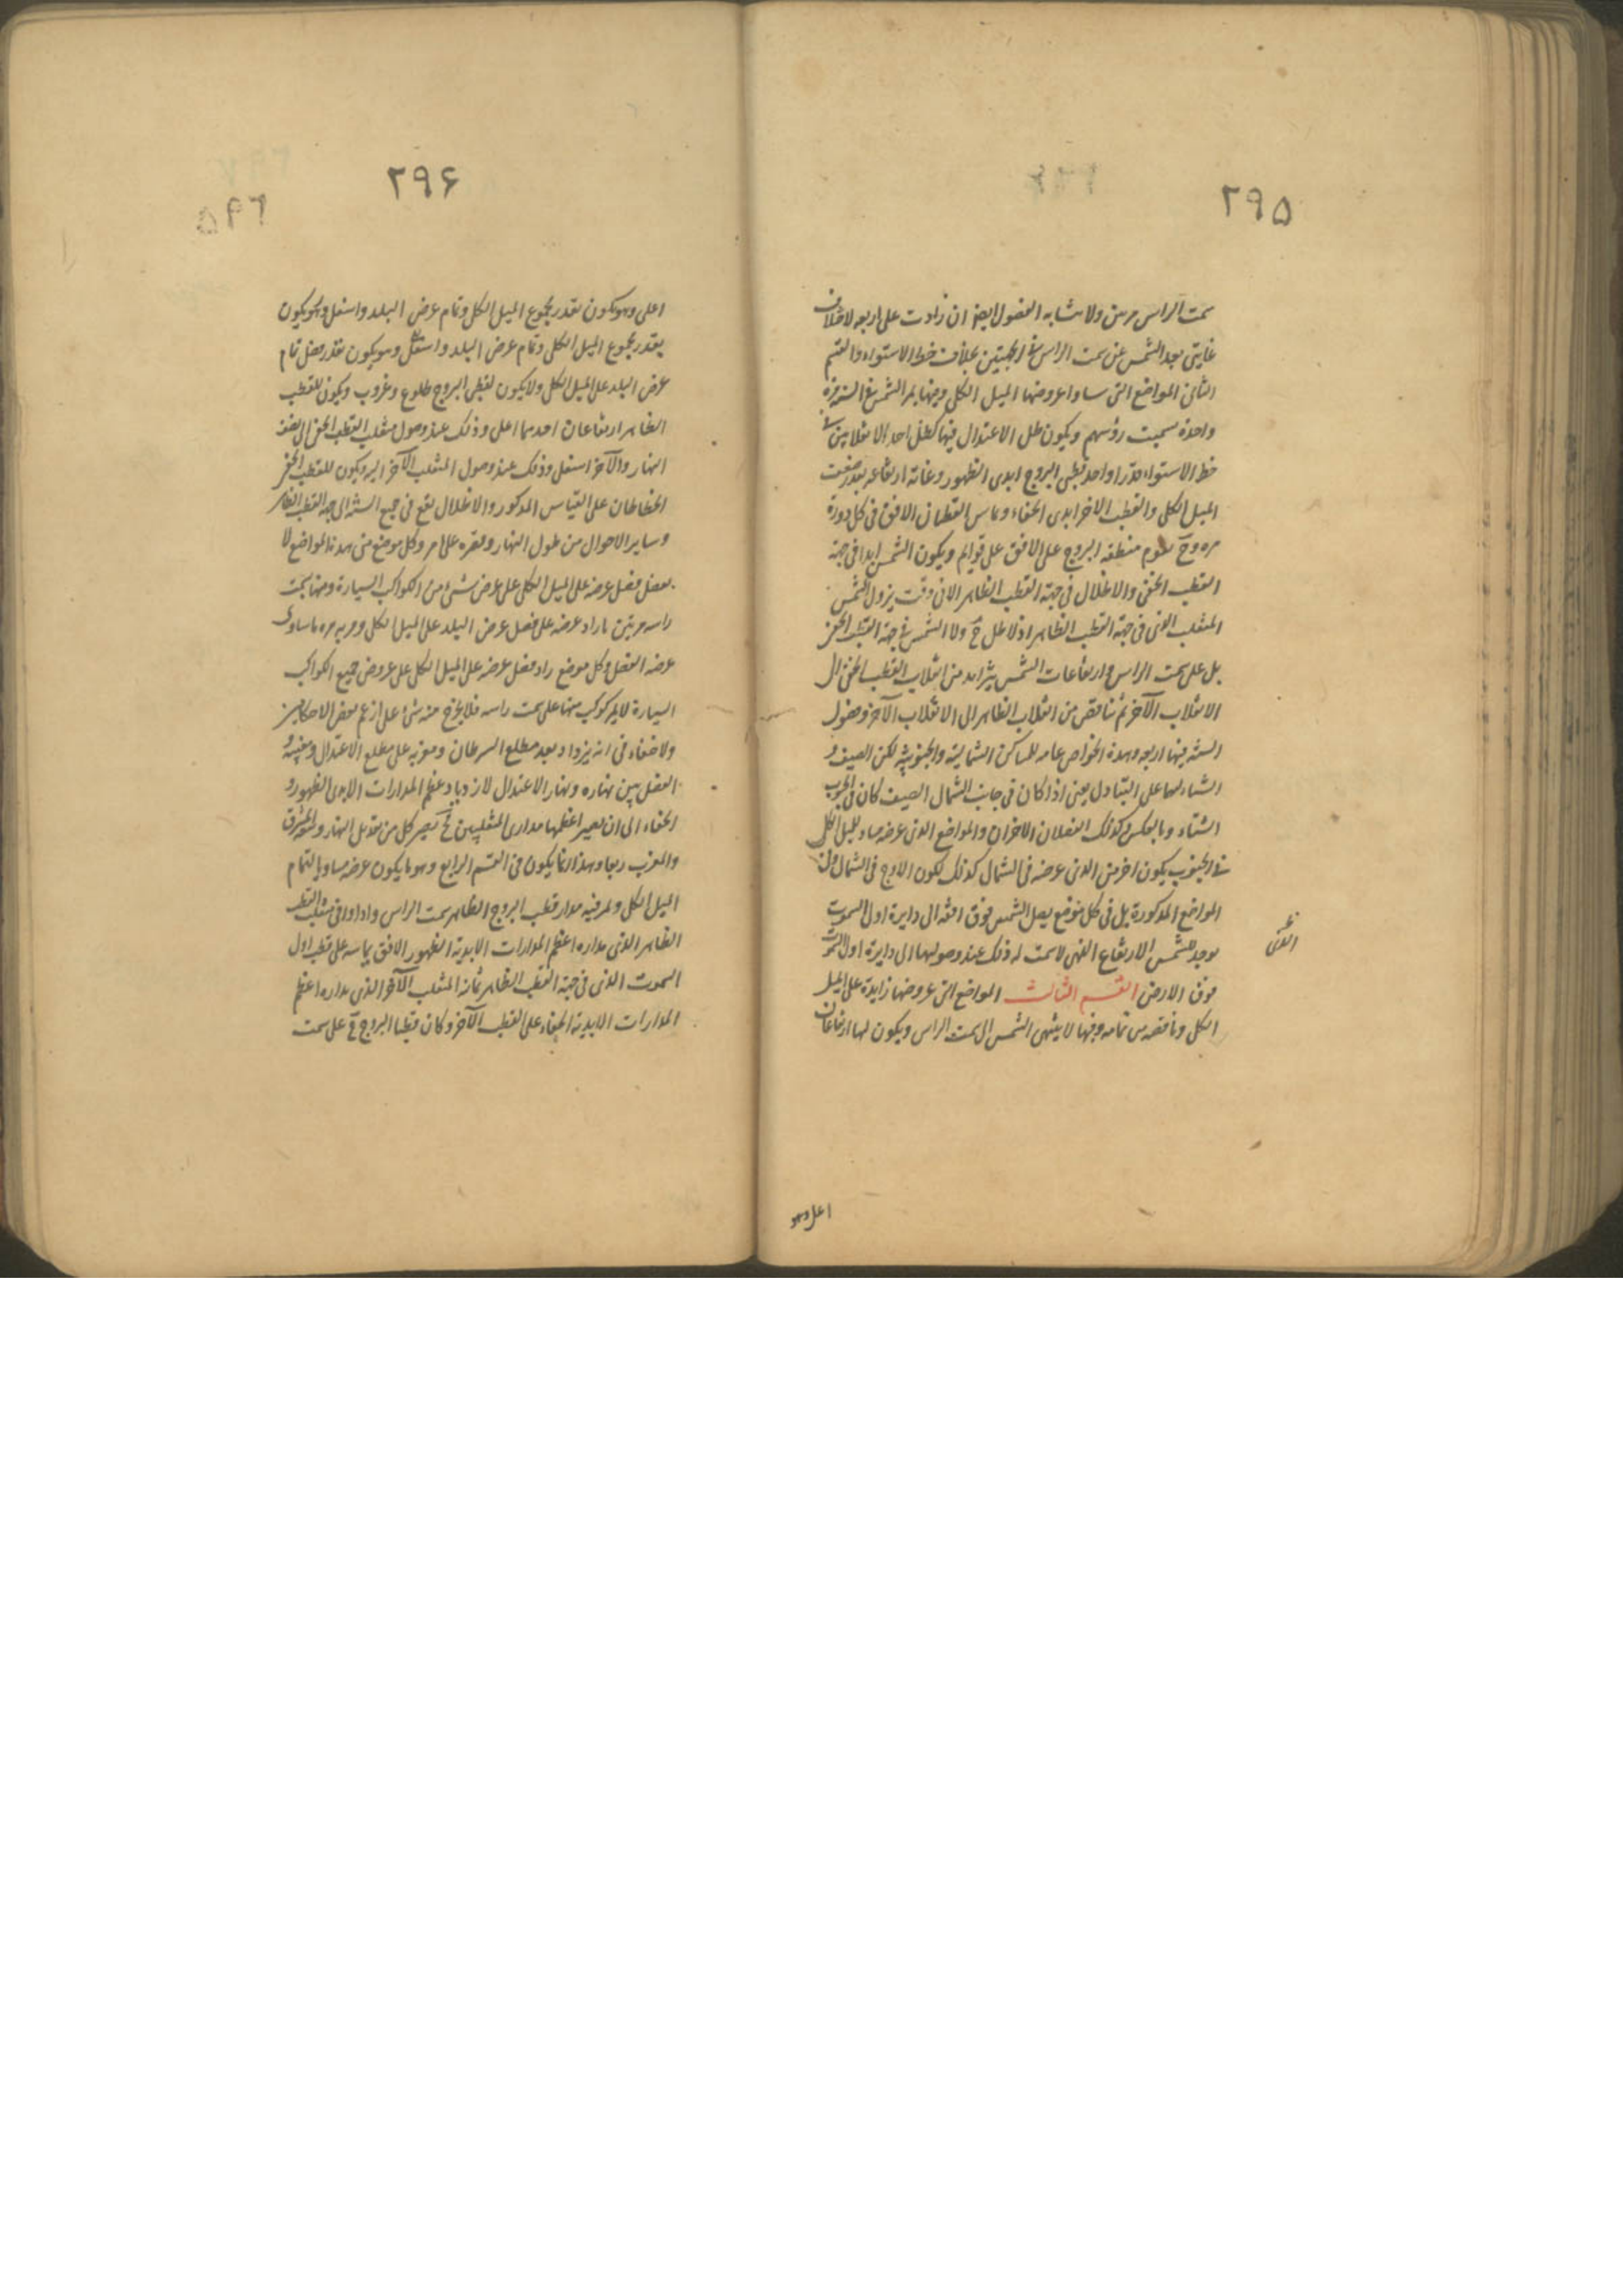 ٢٩۵
سمت الراس مرتين ولا تشابه الفصول ايضا ان زادت على اربعة لاختلاف
غايتى بعد الشمس عن سمت الراس فى الجهتين بخلاف خط الاستواء والقسم
الثانى المواضع التى ساوا عروضها الميل الكلى وفيها يمر الشمس فى السنة مرة
واحدة بسمت رؤسهم ويكون ظل الاعتدال فيها كظل احد الانقلابين فى
خط الاستواء قدرا واحد قطبى البروج ابدى الظهور وغاية ارتفاعه بقدر ضعف
الميل الكلى والقطب الاخر ابدى الخفاء ويماس القطبان الافق فى كل دورة
مرة وح يقوم منطقة البروج على الافق على قوايم ويكون الشمس ابدا فى جهة
القطب الخفى والاظلال فى جهة القطب الظاهر الا فى وقت نزول الشمس
المنقلب الذى فى جهة القطب الظاهر اذ لا ظل ح ولا الشمس فى جهة القطب الخفى
بل على سمت الراس وارتفاعات الشمس يتزايد من انقلاب القطب الخفى الى
الانقلاب الآخر ثم تناقص من انقلاب الظاهر الى الانقلاب الآخر وفصول
السنة فيها اربعة وهذه الخواص عامة للمساكن الشمالية والجنوبية لكن الصيف و
الشتاء لهما على التبادل يعنى اذا كان فى جانب الشمال الصيف كان فى الجنوب
الشتاء وبالعكس وكذلك الفصلان الاخران والمواضع الذى عرضه مساو للميل الكلى
فى الجنوب يكون احر من الذى عرضه فى الشمال كذلك لكون الاوج فى الشمال وفى
المواضع المذكورة بل فى كل موضع يصل الشمس فوق افقه الى دايرة اول السموت
يوجد للشمس الارتفاع الذى لا سمت له وذلك عند وصولها الى دايرة اول السموت
فوق الارض القسم الثالث المواضع التى عروضها زايدة على الميل
الكلى وناقصة من تمامه وفيها لا ينتهى الشمس الى سمت الراس ويكون لها ارتفاعان
الذى
اعلى وهو
٢٩۶
اعلى وهو يكون بقدر مجموع الميل الكلى وتمام عرض البلد واسفل وهو يكون
بقدر مجموع الميل الكلى وتمام عرض البلد واسفل وهو يكون بقدر فضل تمام
عرض البلد على الميل الكلى ولا يكون لقطبى البروج طلوع وغروب ويكون للقطب
الظاهر ارتفاعان احدهما اعلى وذلك عند وصول منقلب القطب الخفى الى نصف
النهار والآخر اسفل وذلك عند وصول المنقلب الآخر اليه ويكون للقطب الخفى
انحطاطان على القياس المذكور والاظلال تقع فى جميع السنة الى جهة القطب الظاهر
وساير الاحوال من طول النهار وقصره على ما مر وكل موضع من هذه المواضع لا
يفضل فضل عرضه على الميل الكلى على عرض شئ من الكواكب السيارة ومنها بسمت
راسه مرتين ما زاد عرضه على فضل عرض البلد على الميل الكلى ومر به مرة ما ساوى
عرضه الفضل وكل موضع زاد فضل عرضه على الميل الكلى على عروض جميع الكواكب
السيارة لا يمر كوكب منها على سمت راسه فلا يخرج منه شئ على ازعم بعض الاحكاميين
ولا خفاء فى انه يزداد بعد مطلع السرطان ومغربه على مطلع الاعتدال ومغيبه و
الفضل بين نهاره ونهار الاعتدال لازدياد عظم المدارات الابدى الظهور و
الخفاء الى ان يصير اعظمها مدارى المنقلبين فح يصير كل من تعديل النهار وسعة المشرق
والمغرب ربعا وهذا انما يكون فى القسم الرابع وهو ما يكون عرضه مساويا لتمام
الميل الكلى ويمر فيه مدار قطب البروج الظاهر بسمت الراس واذا وافى منقلب القطب
الظاهر الذى مداره اعظم المدارات الابدية الظهور الافق يماسه على قطب اول
السموت الذى فى جهة القطب الظاهر ثمانه المنقلب الآخر الذى مداره اعظم
المدارات الابدية الخفاء على القطب الآخر وكان قطبا البروج ح على سمت